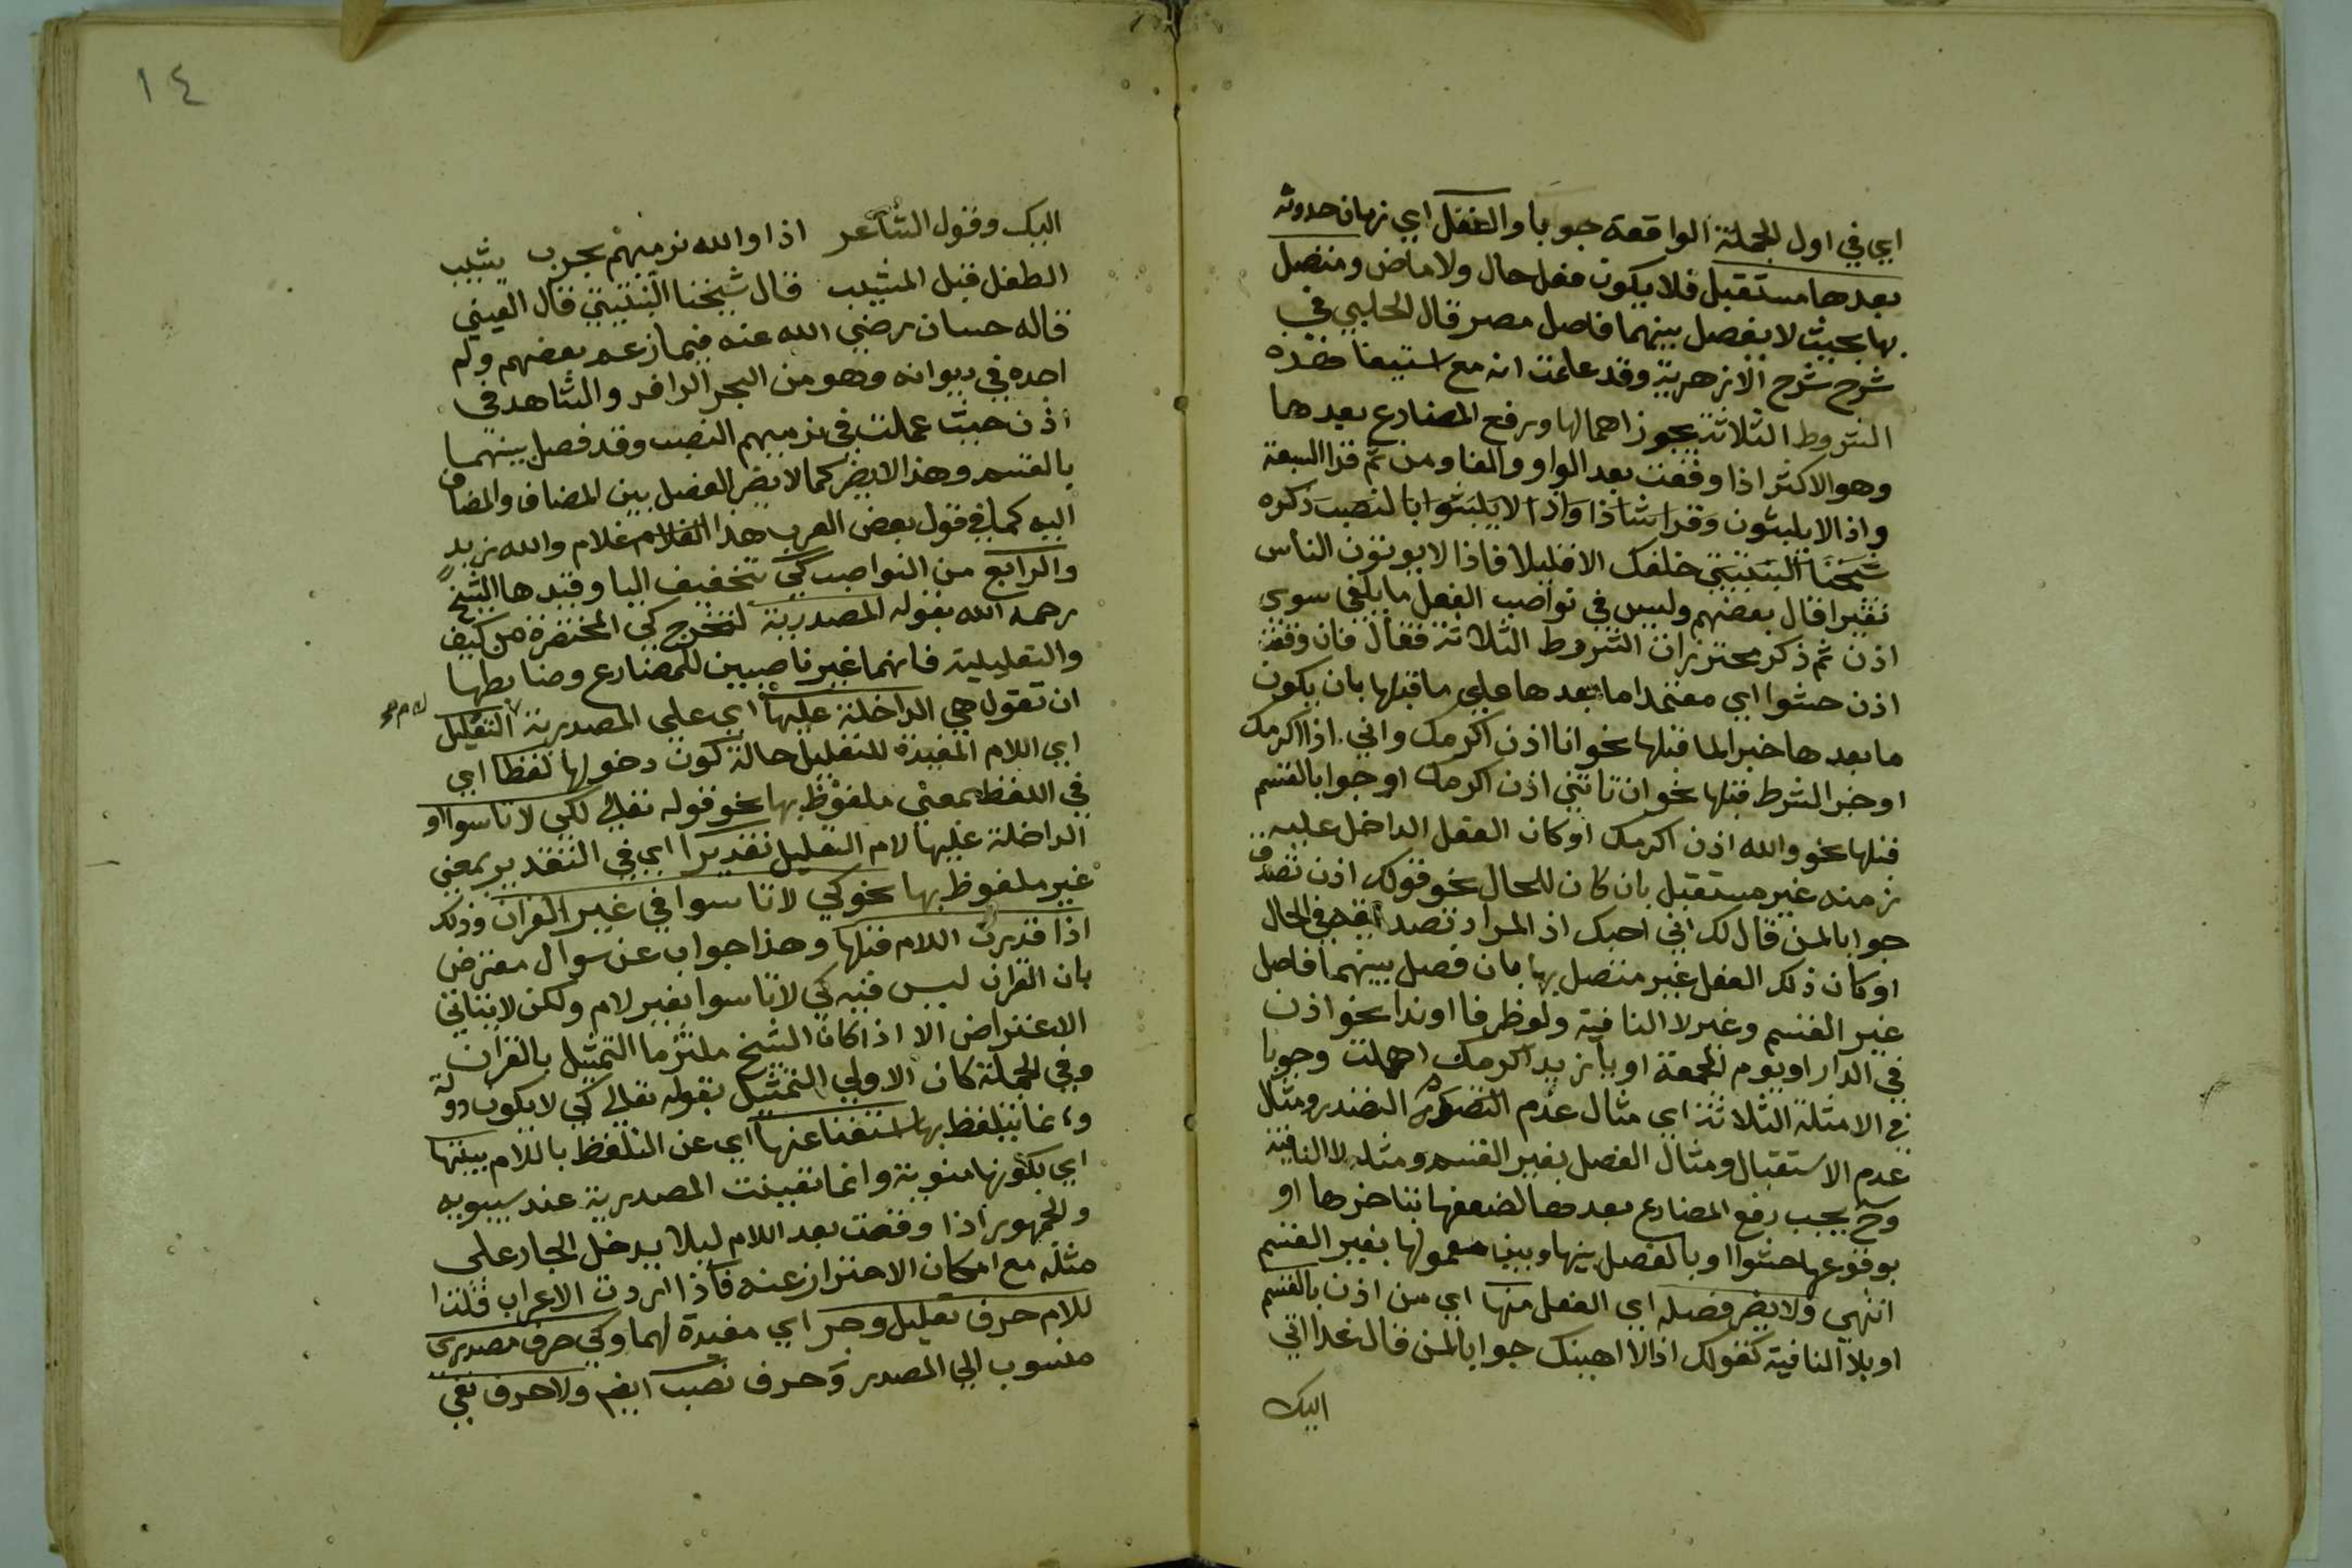 اي في اول الجملة الواقعة جوبا والفعل اي زمان حدوثه
بعدها مستقبل فلا يكون فعل حال ولا ماض ومتصل
بها بحيث لا يفصل بينهما فاصل مصر قال الحلبي في
شرح شرح الازهرية وقد علمت انه مع استيفا هذه
الشروط الثلاثة يجوز اهمالها ورفع المضارع بعدها
وهو الاكثر اذا وقعت بعد الواو والفا ومن ثم قرا السبعة
واذا لا يلبثون وقرا شاذا واذا لا يلبثوا بالنصب ذكره
شيخنا النبتيتي خلفك الا قليلا فاذا لا يوتون الناس
نقيرا قال بعضهم وليس في نواصب الفعل ما يلغى سوى
اذن ثم ذكر محترزات الشروط الثلاثة فقال فان وقعت
اذن حشوا اي معتمدا ما بعدها على ما قبلها بان يكون
ما بعدها خبرا لما قبلها نحو انا اذن اكرمك واني اذا اكرمك
او خبر الشرط قبلها نحو ان تاتني اذن اكرمك او جوابا لقسم
قبلها نحو والله اذن اكرمك او كان الفعل الداخل عليه
زمنه غير مستقبل بان كان للحال نحو قولك اذن تصدق
جوابا لمن قال لك اني احبك اذ المراد تصدق في الحال
او كان ذلك الفعل غير متصل بها بان فصل بينهما فاصل
غير القسم وغير لا النافية ولو ظرفا او ندا نحو اذن
في الدار او يوم الجمعة او يا زيد اكرمك اهملت وجوبا
في الامثلة الثلاثة اي مثال عدم التصدر ومثال
عدم الاستقبال ومثال الفصل بغير القسم ومثله لا النافية
وح يجب رفع المضارع بعدها لضعفها بتاخرها او
بوقوعها حشوا او بالفصل بينها وبين معمولها بغير القسم
انتهى ولا يضر فصله اي الفعل منها اي من اذن بالقسم
او بلا النافية كقولك اذا لا اهينك جوابا لمن قال غدا اتي
اليك
١٤
اليك وقول الشاعر اذا والله نرميهم بحرب يشيب
الطفل قبل المشيب قال شيخنا النبتيتي قال العيني
قاله حسان رضي الله عنه فيما زعم بعضهم ولم
اجده في ديوانه وهو من البحر الوافر والشاهد في
اذن حيث عملت في نرميهم النصب وقد فصل بينهما
بالقسم وهذا لا يضر كما لا يضر الفصل بين المضاف والمضاف
اليه كما في قول بعض العرب هذا الغلام غلام والله زيد
والرابع من النواصب كي بتخفيف اليا وقيدها الشيخ
رحمه الله بقوله المصدرية لتخرج كي المختصرة من كيف
والتعليلية فانهما غير ناصبين للمضارع وضابطها
ان تقول هي الداخلة عليها اي على المصدرية التعليل
لام
اي اللام المفيدة للتعليل حالة كون دخولها لفظا اي
في اللفظ بمعنى ملفوظ بها نحو قوله تعالى لكي لا تاسوا او
الداخلة عليها لام التعليل تقديرا اي في التقدير بمعنى
غير ملفوظ بها نحو كي لا تاسوا في غير القران وذلك
اذا قدرت اللام قبلها وهذا جواب عن سوال معترض
بان القران ليس فيه كي لا تاسوا بغير لام ولكن لا يتاتى
الاعتراض الا اذا كان الشيخ ملتزما التمثيل بالقران
وفي الجملة كان الاولى التمثيل بقوله تعالى كي لا يكون دولة
وانما يتلفظ بها استغنا عنها اي عن التلفظ باللام بنيتها
اي بكونها منوية وانما تعينت المصدرية عند سيبويه
والجمهور اذا وقعت بعد اللام ليلا يدخل الجار على
مثله مع امكان الاحتراز عنه فاذا اردت الاعراب قلت
للام حرف تعليل وجر اي مفيدة لهما وكي حرف مصدري
منسوب الى المصدر وحرف نصب ايضم ولا حرف نفي